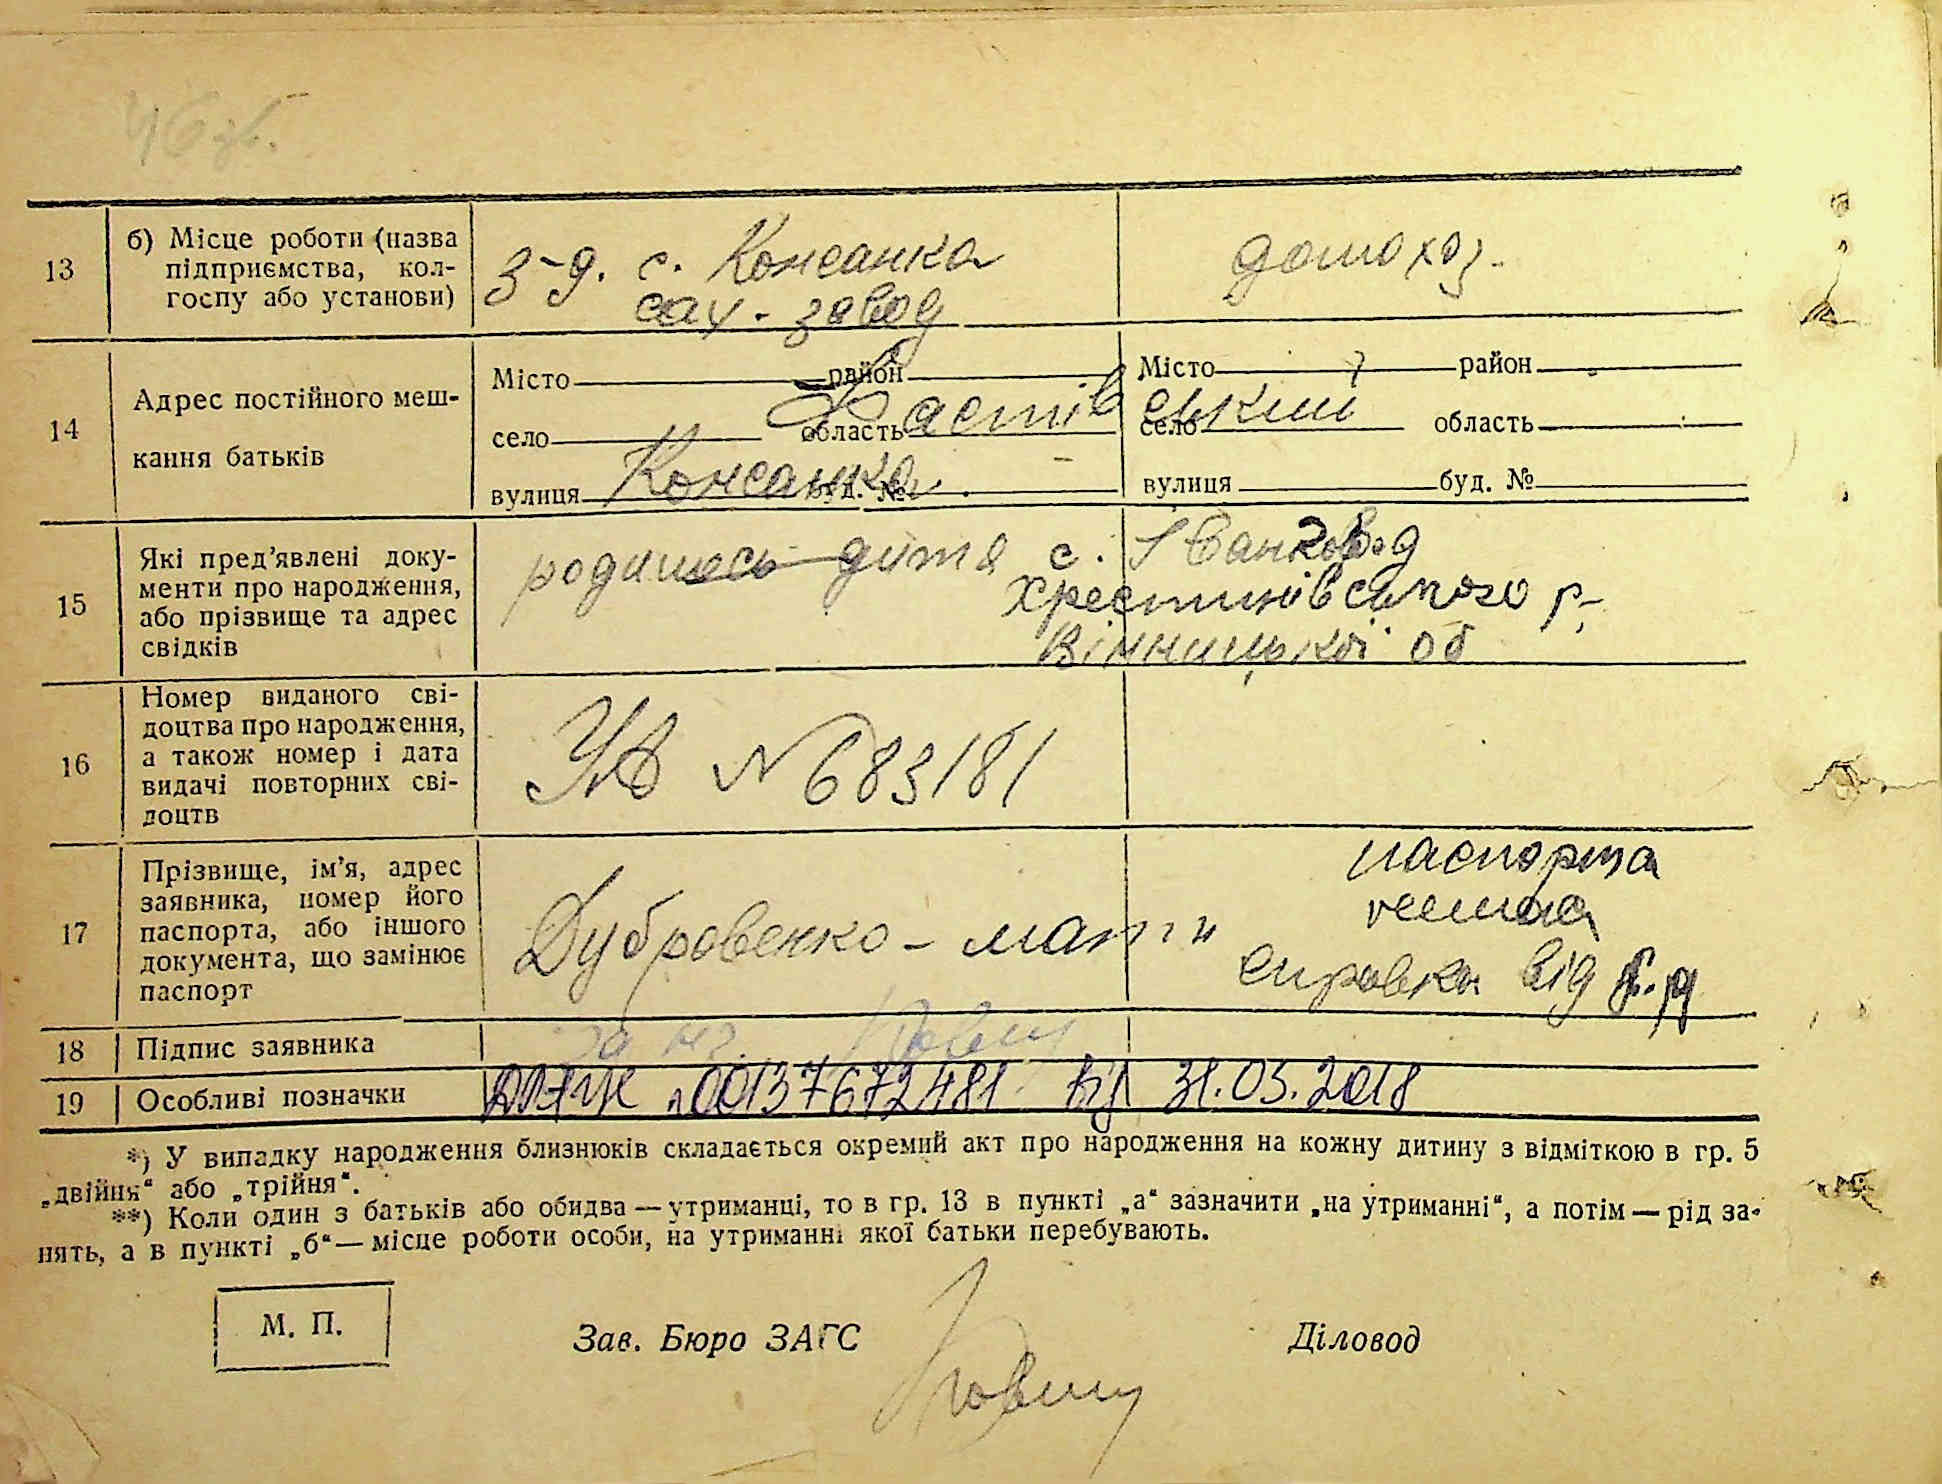 13
б) Місце роботи (назва
підприємства, кол-
госпу або установи)
з-д. с. Кожанка
сах. завод
домохоз.
14
Адрес постійного меш-
кання батьків
Місто район
Фастівський
село область
вулиця буд. №
Кожанка
Місто район
село область
вулиця буд. №
15
Які пред’явлені доку-
менти про народження,
або прізвище та адрес
свідків
родилось дитя с.
Христинівського р-
Вінницької об
16
Номер виданого сві-
доцтва про народження,
а також номер і дата
видачі повторних сві-
доцтв
№ 683181
17
Прізвище, ім’я, адрес
заявника, номер його
паспорта, або іншого
документа, що замінює
паспорт
Дубровенко - мати
паспорта
немає
справка від
18
Підпис заявника
19
Особливі позначки
00137672481 від 31.03.2018
*) У випадку народження близнюків складається окремий акт про народження на кожну дитину з відміткою в гр. 5
„двійня“ або „трійня“.
**) Коли один з батьків або обидва — утриманці, то в гр. 13 в пункті „а“ зазначити „на утриманні“, а потім — рід за-
нять, а в пункті „б“ — місце роботи особи, на утриманні якої батьки перебувають.
М. П.
Зав. Бюро ЗАГС
Діловод